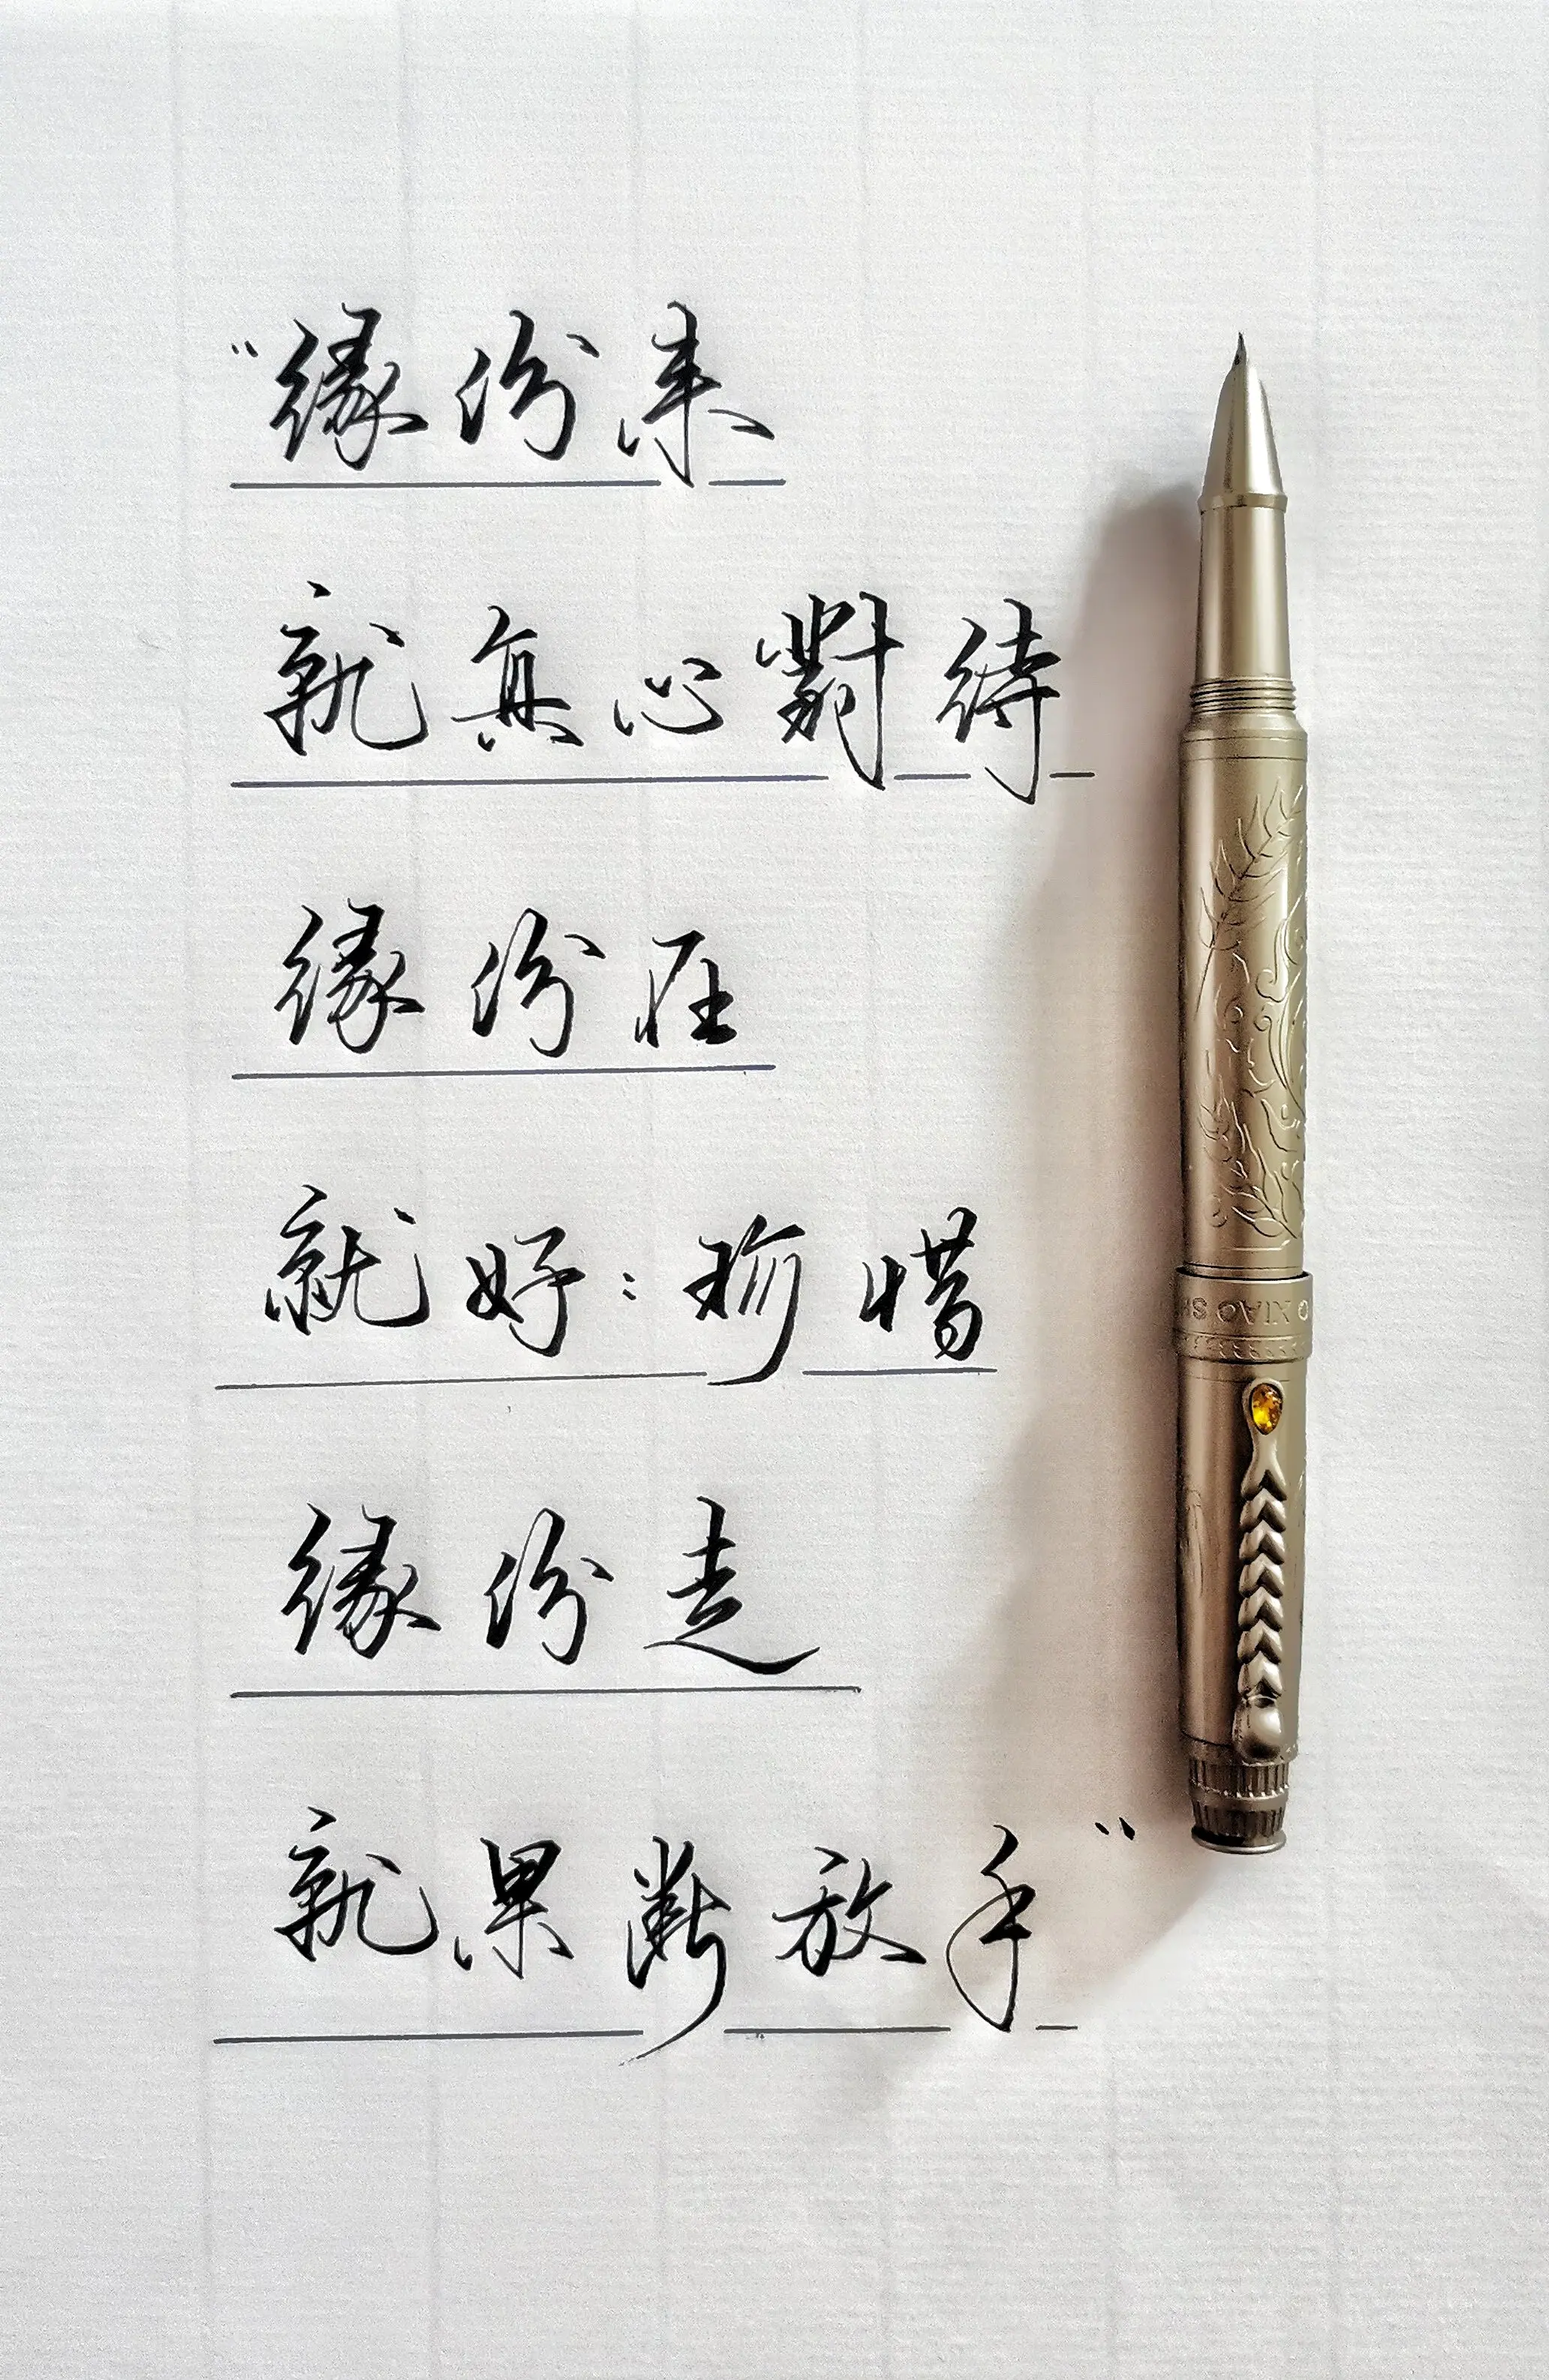 “緣份来
就真心對待
緣份在
就好:珍惜
緣份走
就果斷放手”
XIAO SH